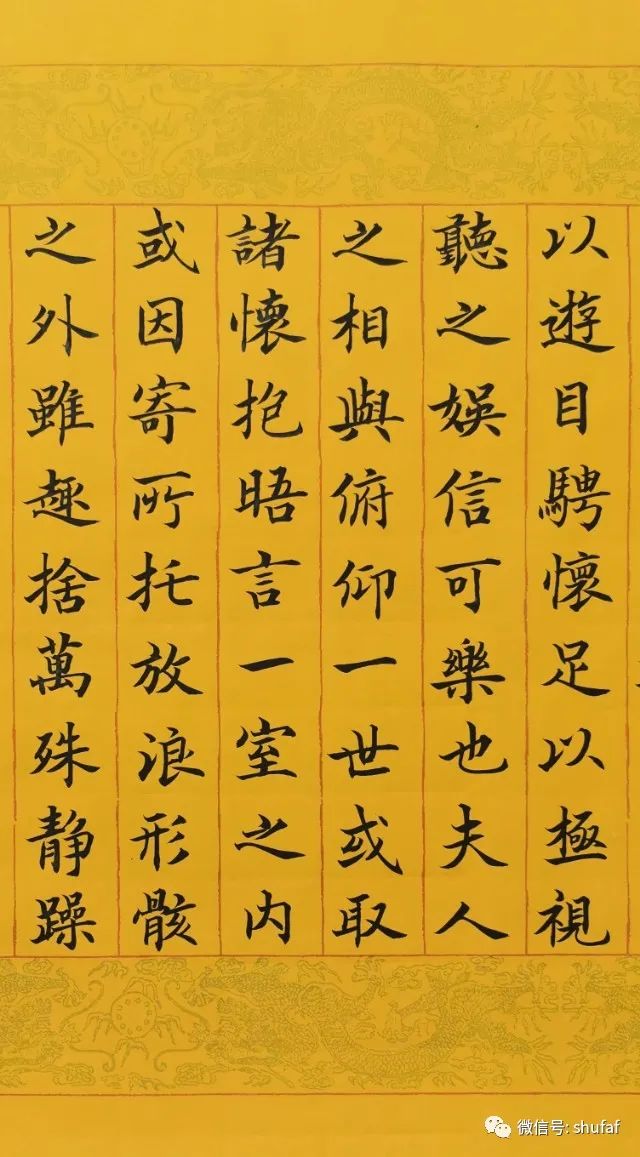 以遊目騁懷足以極視
聽之娛信可樂也夫人
之相與俯仰一世或取
諸懷抱晤言一室之內
或因寄所托放浪形骸
之外雖趣捨萬殊静躁
微信号: shufaf